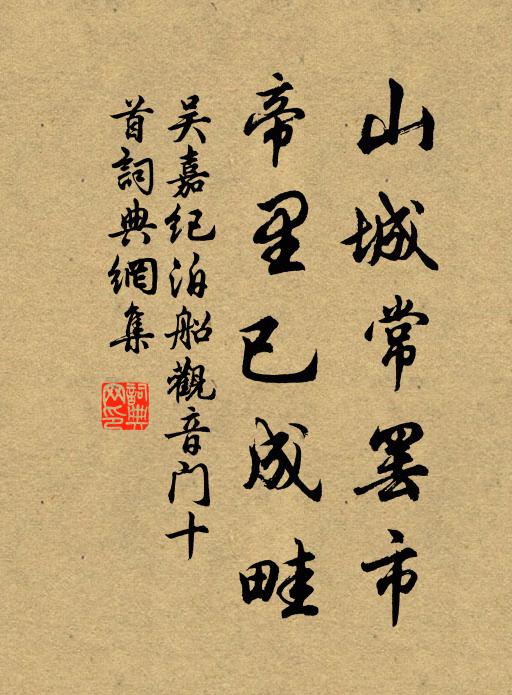 山城常罢市
帝里已成畦
吴嘉纪泊船觀音门十
首詞典網集
詞典
网印